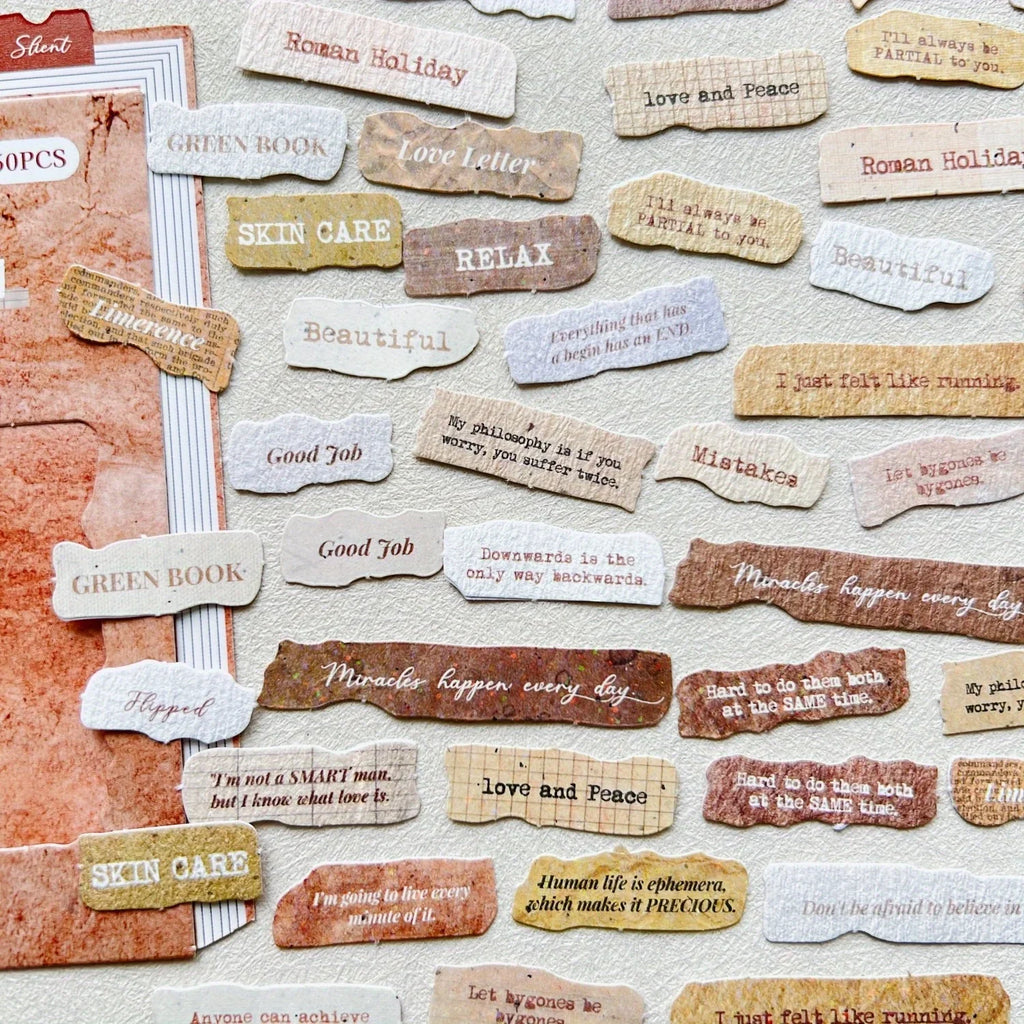 Slient
Roman Holiday
I'll always be
PARTIAL to you.
love and Peace
50PCS
GREEN BOOK
Love Letter
Roman Holiday
SKIN CARE
RELAX
I'll always be
PARTIAL to you.
Beautiful
Limerence
Beautiful
Everything that has
a begin has an END.
I just felt like running.
Good Job
My philosophy is if you
worry, you suffer twice.
Mistakes
Let bygones be
bygones.
GREEN BOOK
Good Job
Downwards is the
only way backwards.
Miracles happen every day
Miracles happen every day.
Hard to do them both
at the SAME time.
My philo
worry, y
Flipped
"I'm not a SMART man.
but I know what love is.
love and Peace
Hard to do them both
at the SAME time.
Lim
SKIN CARE
I'm going to live every
minute of it.
Human life is ephemera,
which makes it PRECIOUS.
Don't be afraid to believe in
Anyone can achieve
Let bygones be
bygones.
I just felt like running.